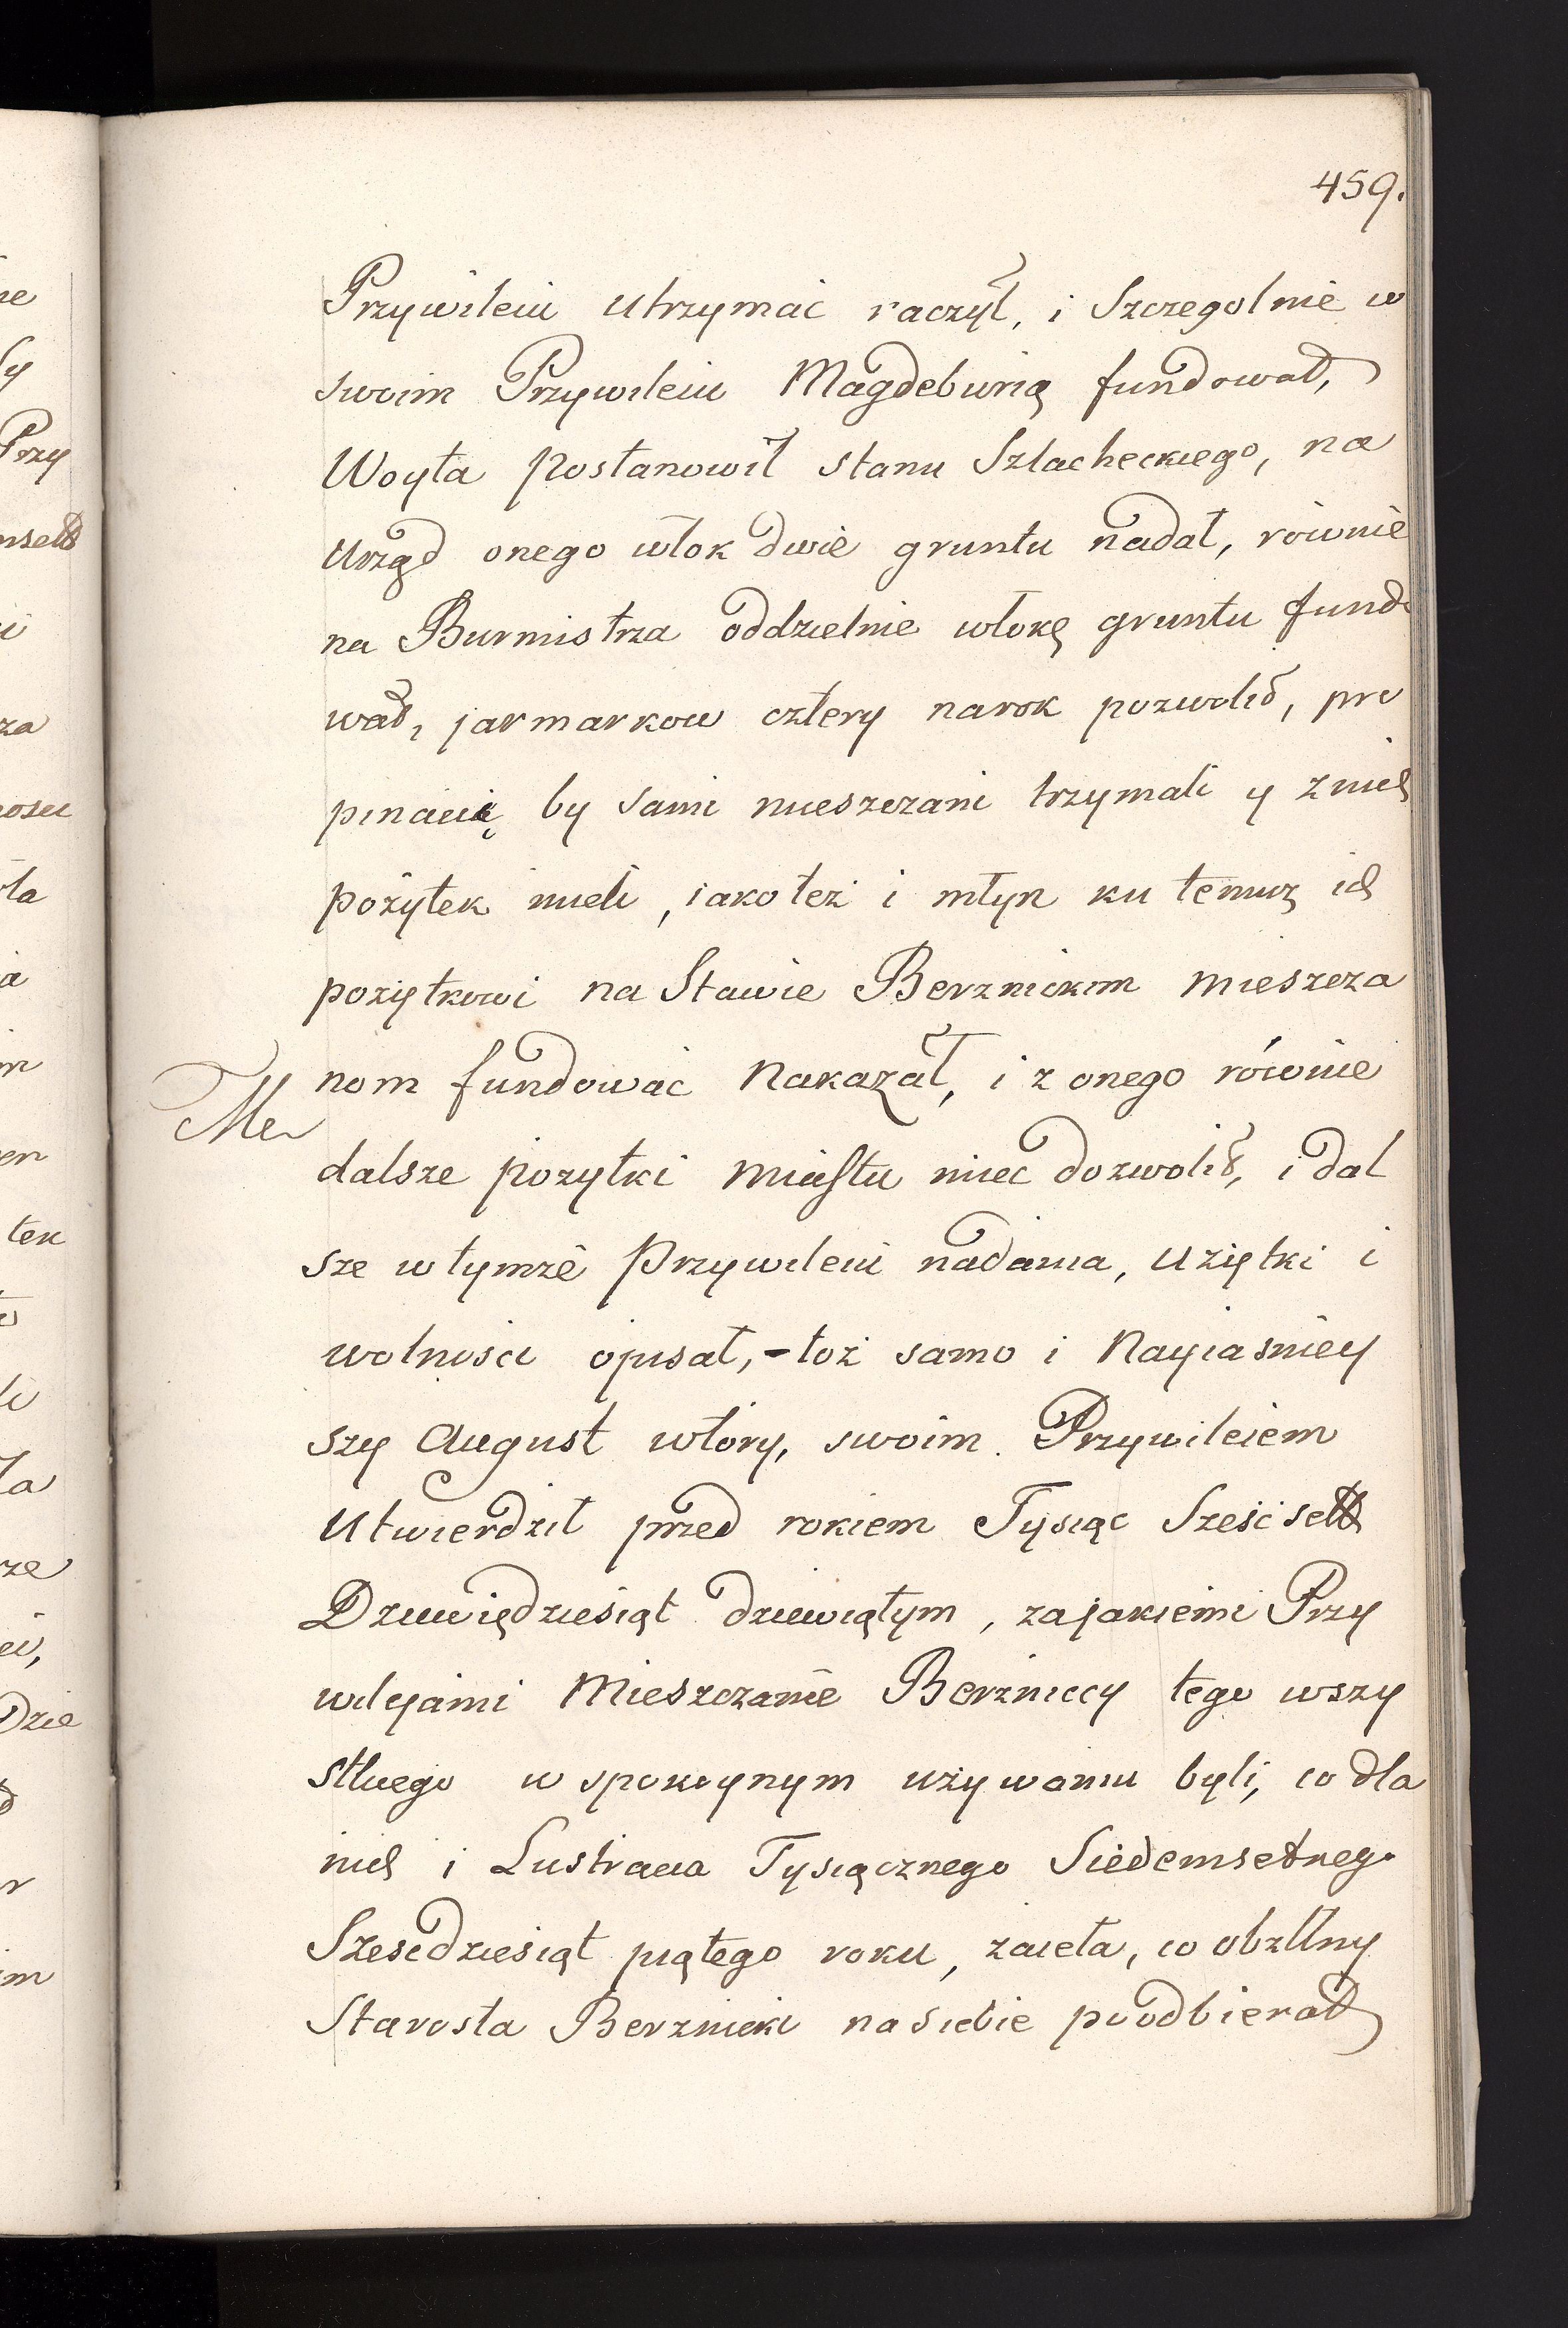 459.
Przywileiu utrzymać raczył, i Szczegolnie w
swoim Przywileiu Magdeburią fundował,
Woyta postanowił stanu Szlacheckiego, na
Urząd onego włok dwie gruntu nadał, rownie
na Burmistrza oddzielnie włokę gruntu fundo
wał, jarmarkow cztery narok pozwolił, pro
pinacię by sami mieszczani trzymali y znich
pożytek mieli, iako też i młyn ku temuz ich
pozytkowi na Stawie Berznickim mieszcza
nom fundować Nakazał, i z onego równie
Me
dalsze pozytki Miastu miec dozwolił, i dal
sze wtymże Przywileiu nadania, użytki i
wolności opisał, - toż samo i Nayiasniey
szy August wtóry, swoim Przywileiem
Utwierdził przed rokiem Tysiąc Sześćset
Dziewiędziesiąt dziewiątym, zajakiemi Przy
wilejami Mieszczanie Berżniccy tego wszy
stkiego w spokoynym używaniu byli, co dla
nich i Lustracia Tysiącznego Siedemsetnego
Szescdziesiąt piątego roku, zaięta, co
Starosta Berznicki nasiebie poodbierał